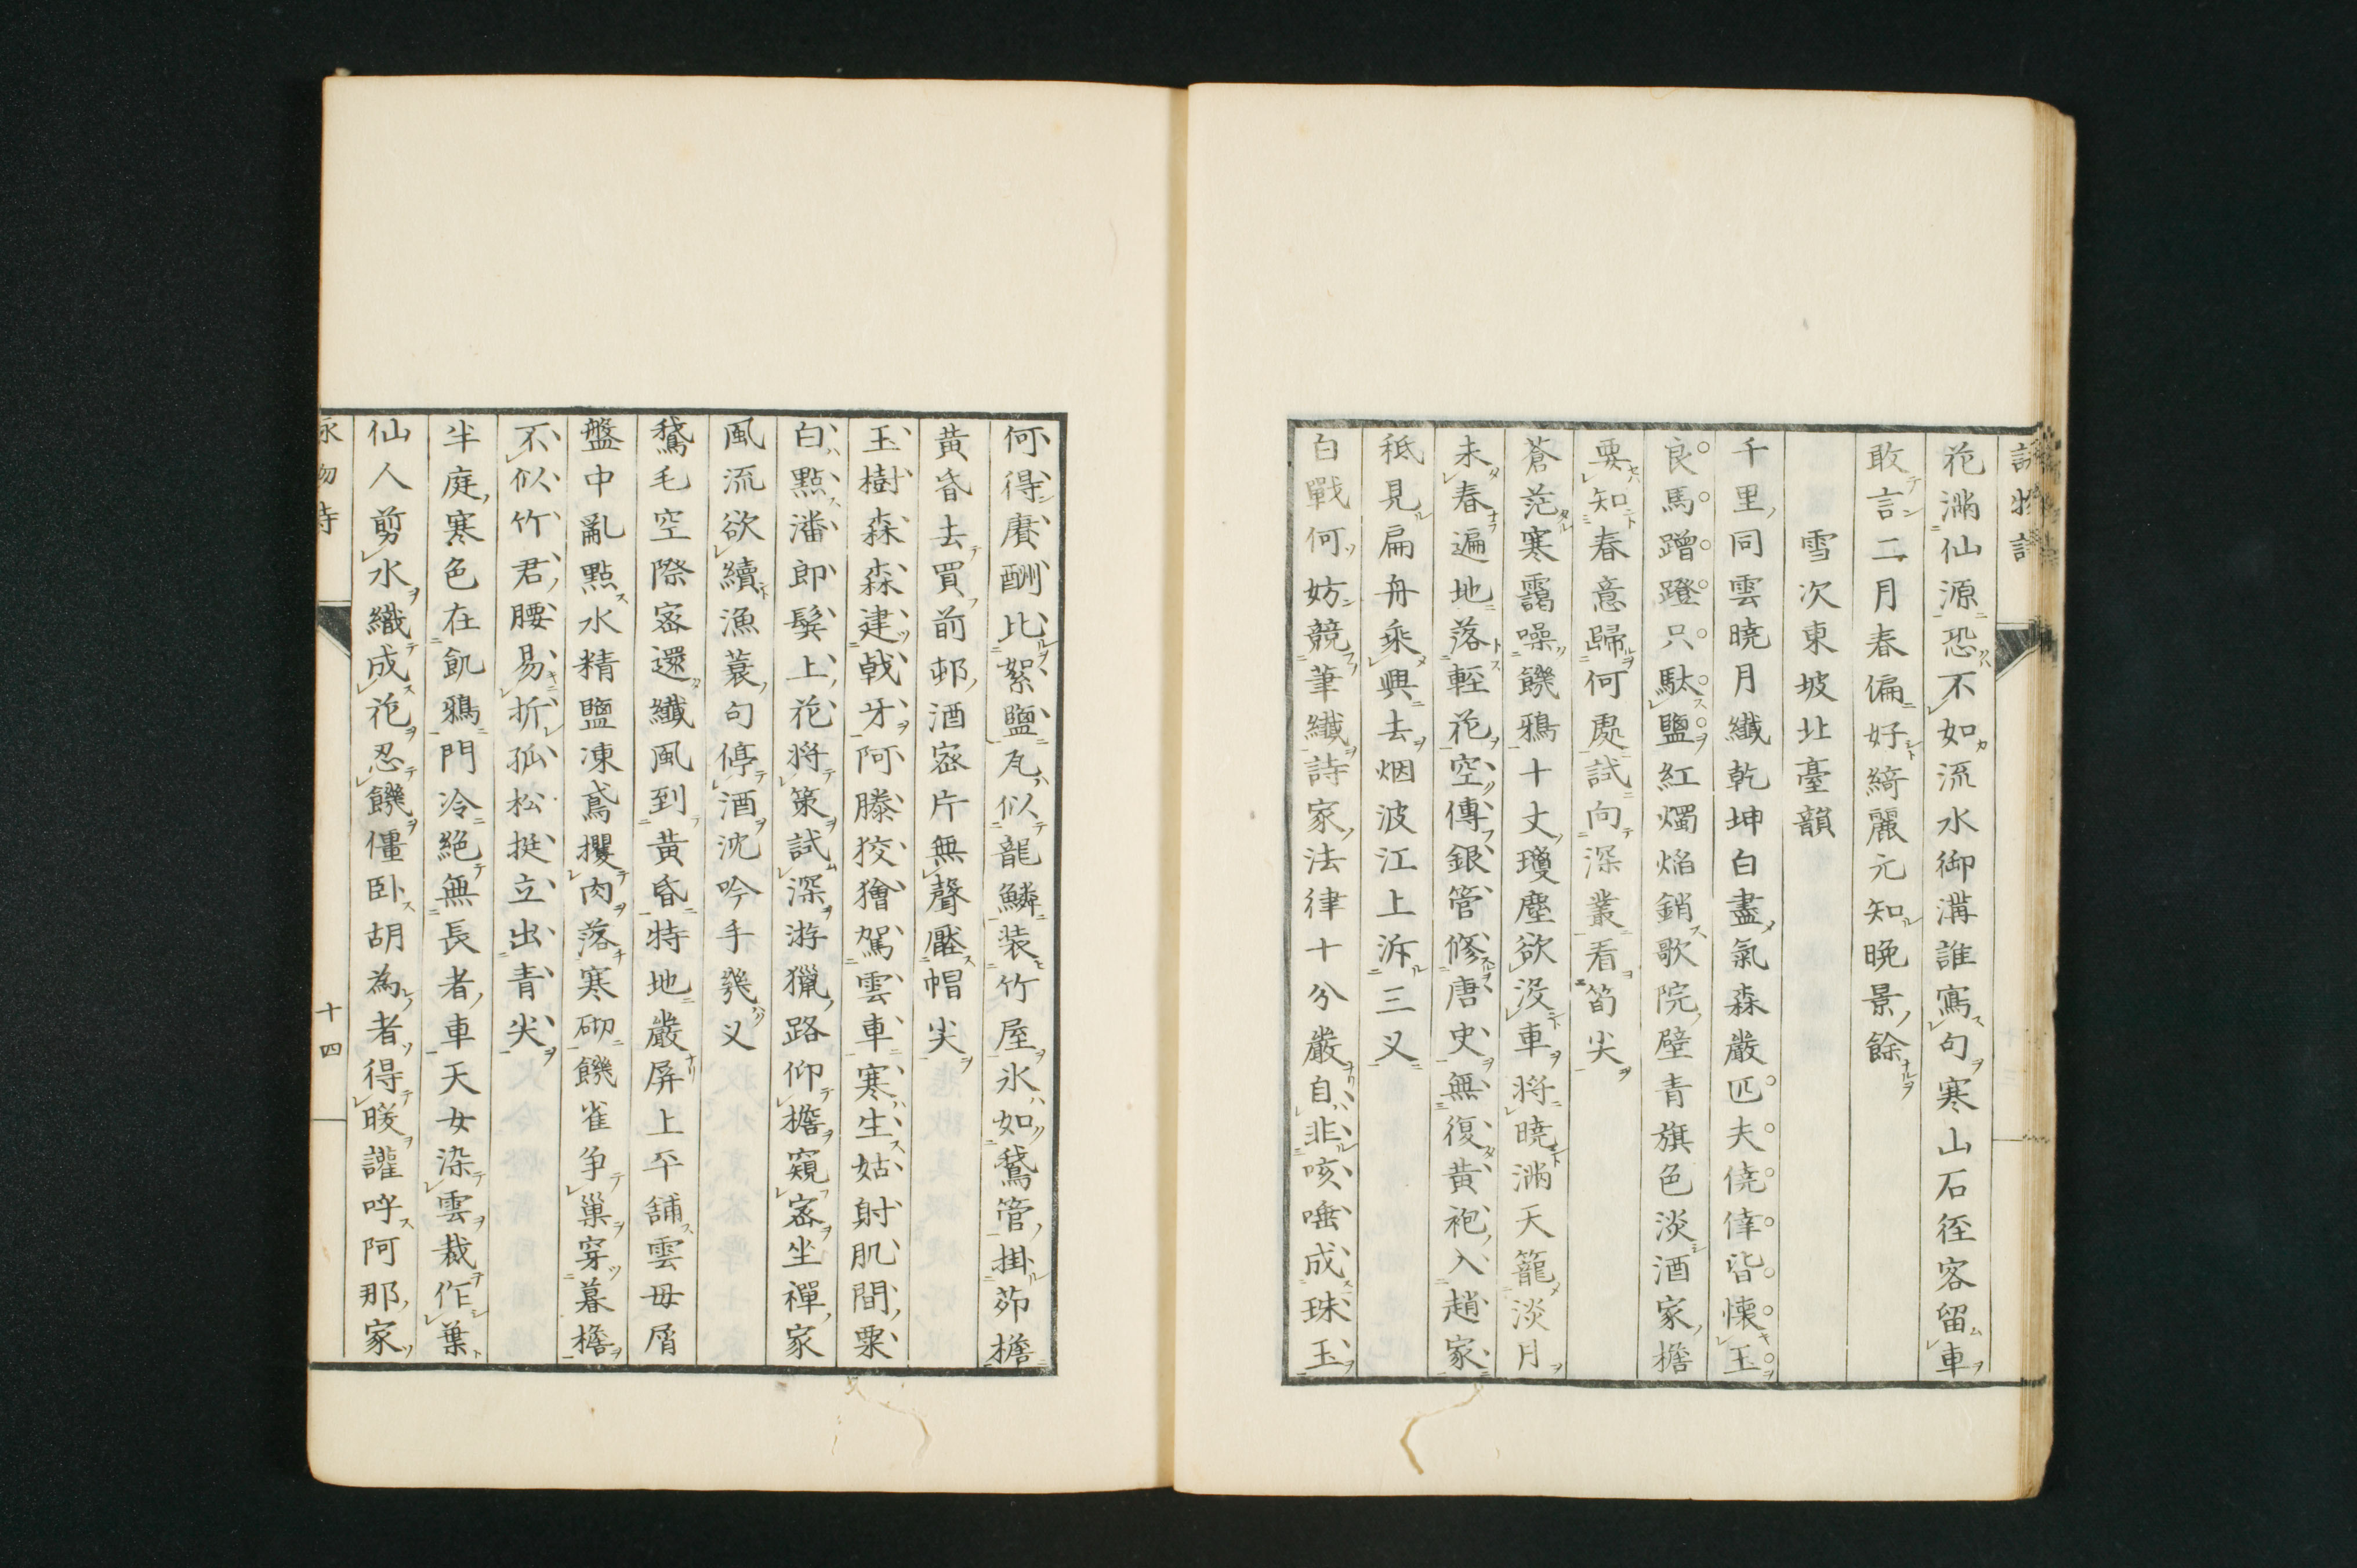 詠物詩
花滿仙源恐不如流水御溝誰寫句寒山石徑客留車
敢言二月春偏好綺麗元知晚景餘
雪次東坡北臺韻
千里同雲曉月纖乾坤白盡氣森嚴匹夫僥倖皆懷玉
良馬蹭蹬只馱鹽紅燭焔銷歌院壁青旗色淡酒家檐
要知春意歸何處試向深叢看筍尖
蒼茫寒靄噪饑鴉十丈瓊塵欲沒車將曉滿天籠淡月
未春遍地落輕花空傳銀管修唐史無復黃袍入趙家
秪見扁舟乘興去烟波江上泝三叉
白戰何妨競筆纖詩家法律十分嚴自非咳唾成珠玉
何得賡酬比絮鹽瓦似龍鱗裝竹屋氷如鵞管掛茆檐
黃昏去買前邨酒密片無聲壓帽尖
玉樹森森建戟牙阿滕狡獪駕雲車寒生姑射肌間粟
白點潘郎鬢上花將策試深游獵路仰檐窺密坐禪家
風流欲續漁蓑句停酒沈吟手幾叉
鵞毛空際密還纖風到黃昏特地嚴屏上平舖雲母屑
盤中亂點水精鹽凍鳶攫肉落寒砌饑雀爭巢穿暮檐
不似竹君腰易折孤松挺立出青尖
半庭寒色在飢鴉門冷絕無長者車天女染雲裁作葉
仙人剪水織成花忍饑僵卧胡為者得暖讙呼阿那家
詠物詩
十四